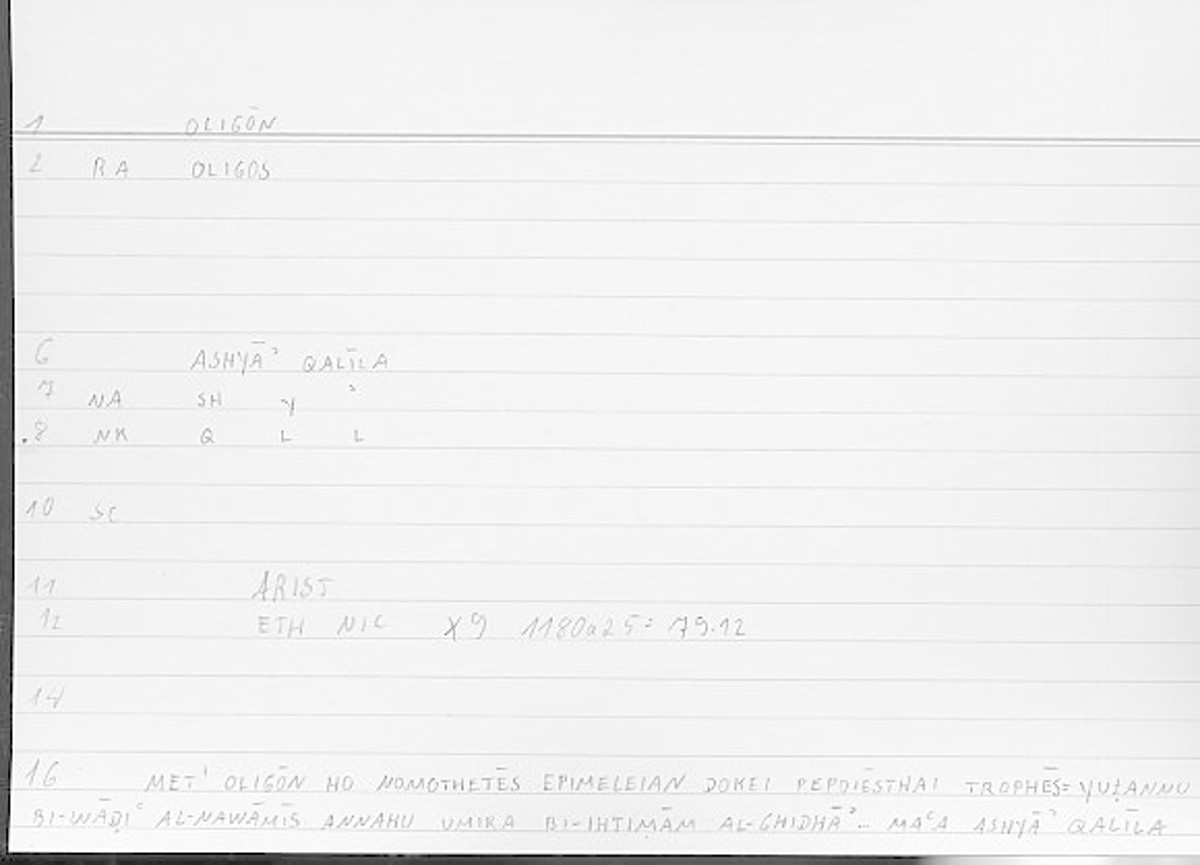 1 OLIGŌN
2 RA OLIGOS
6 ASHYĀʾ QALĪLA
7 NA SH Y ʾ
.8 NK Q L L
10 SC
11 ARIST
12 ETH NIC X9 1180a25 = 79.12
14
16 MET' OLIGŌN HO NOMOTHETĒS EPIMELEIAN DOKEI PEPOIĒSTHAI TROPHĒS = YUẒANNU
BI-WĀḌIʿ AL-NAWĀMĪS ANNAHU UMIRA BI-IHTIMĀM AL-GHIDHĀʾ.. MAʿA ASHYĀʾ QALĪLA